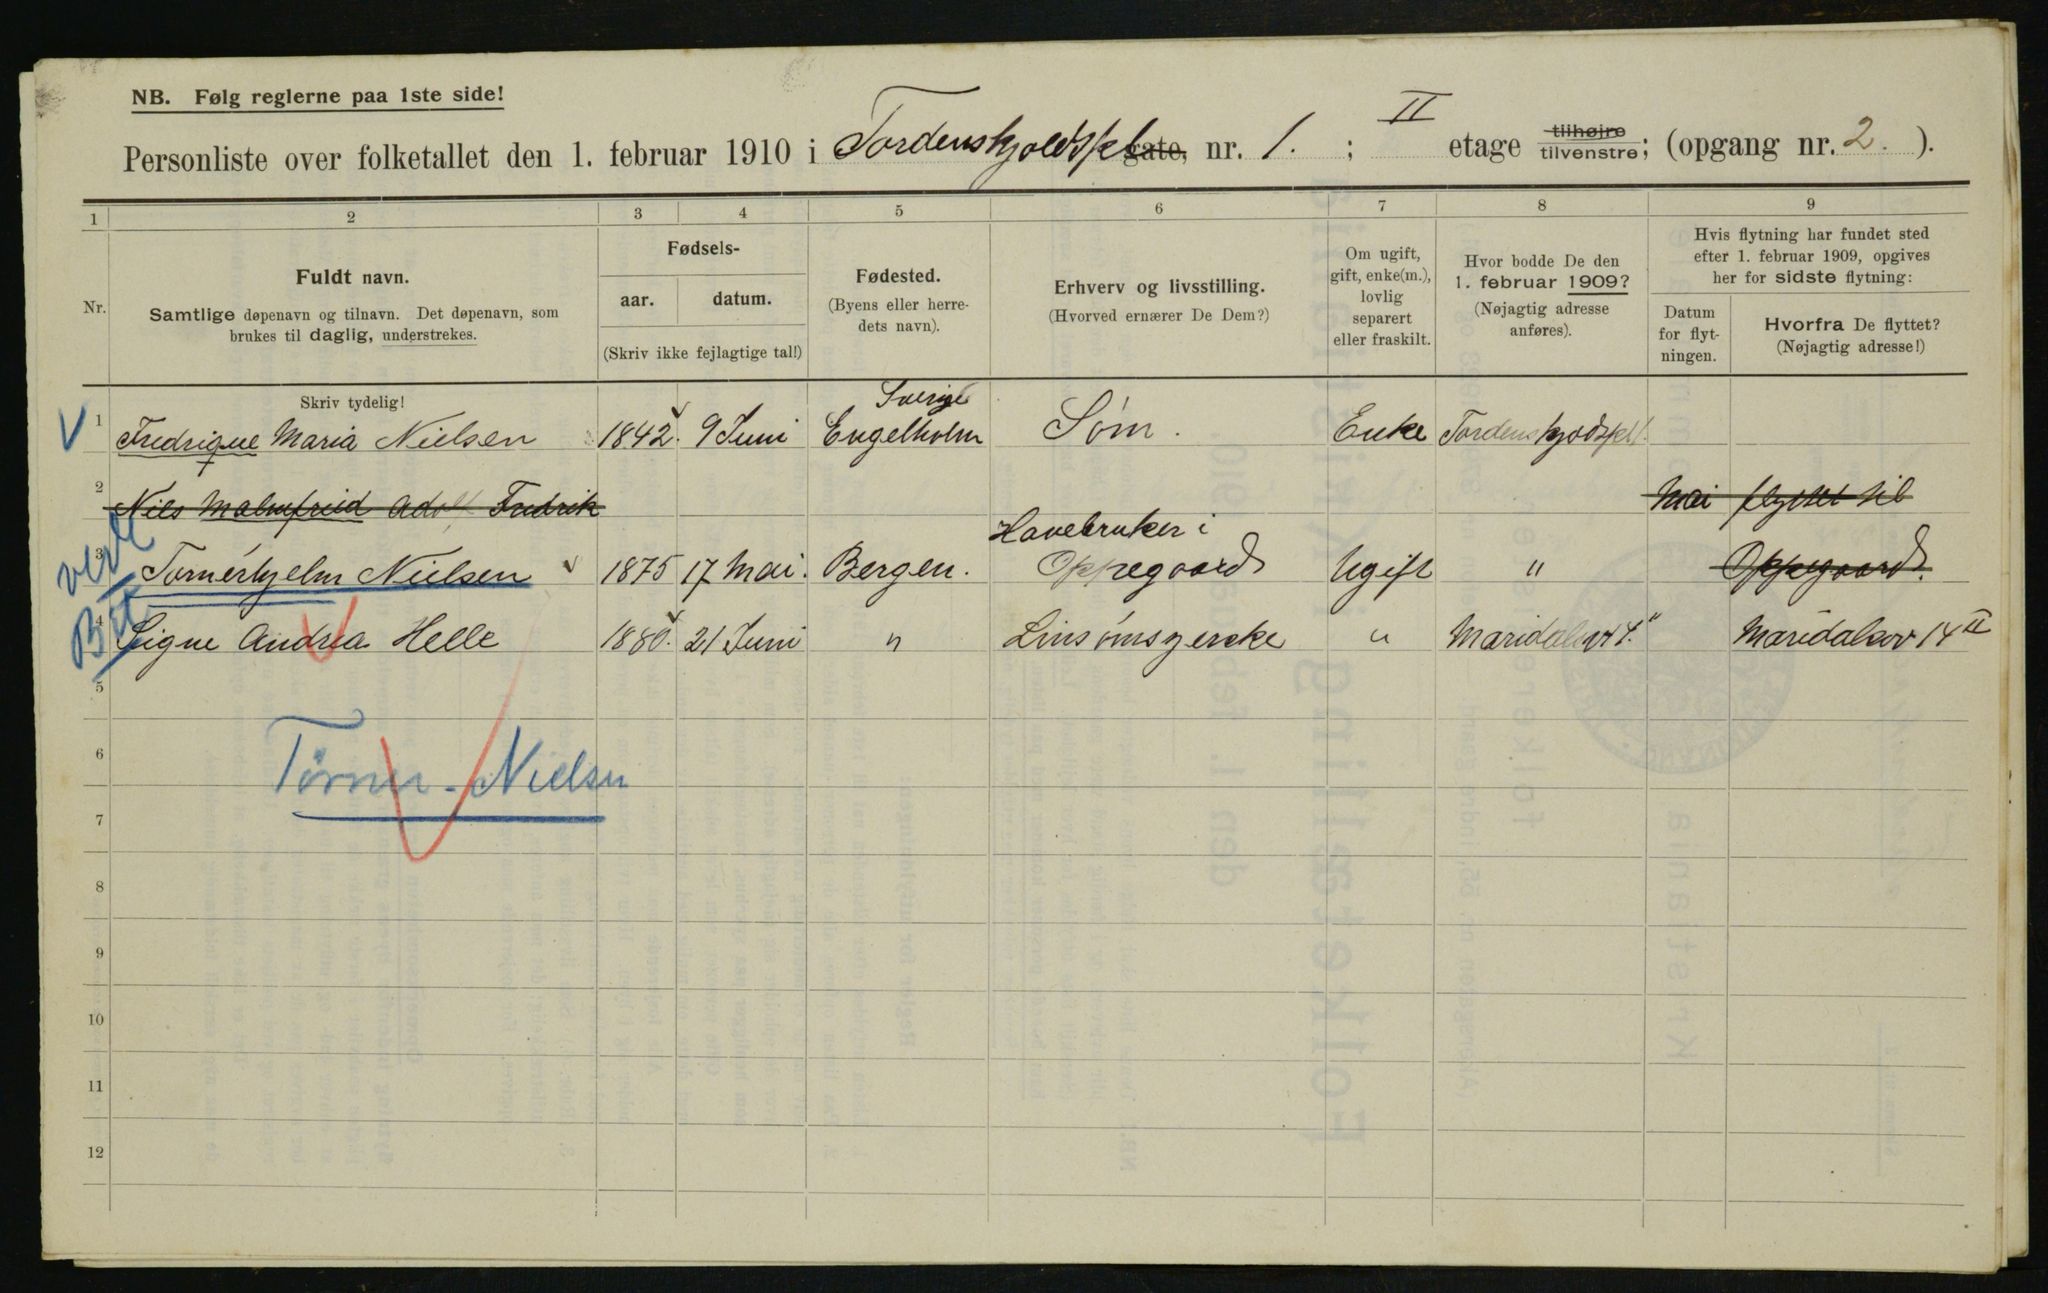 NB. Følg reglerne paa 1ste side!
Personliste over folketallet den 1. februar 1910 i Tordenskjoldspl gate, nr. 1. ; II etage tilhøjre tilvenstre; (opgang nr. 2. ).
1 2 3 4 5 6 7 8 9
Nr.
Fuldt navn.
Samtlige døpenavn og tilnavn. Det døpenavn, som
brukes til daglig, understrekes.
Fødsels-
aar. datum.
(Skriv ikke fejlagtige tal!)
Fødested.
(Byens eller herre-
dets navn).
Erhverv og livsstilling.
(Hvorved ernærer De Dem?)
Om ugift,
gift, enke(m.),
lovlig
separert
eller fraskilt.
Hvor bodde De den
1. februar 1909?
(Nøjagtig adresse
anføres).
Hvis flytning har fundet sted
efter 1. februar 1909, opgives
her for sidste flytning:
Datum
for flyt-
ningen.
Hvorfra De flyttet?
(Nøjagtig adresse!)
Skriv tydelig!
Sverige
1 Fredrique Maria Nielsen 1842. 9 Juni Engelholm Søm. Enke Tordenskjoldspl 1.
2 Nils Malmfried Adolf Fredrik Mai flyttet til
Havebruker i
3 Tornerhjelm Nielsen 1875 17 Mai. Bergen. Oppegaard Ugift " Oppegaard.
4 Signe Andrea Helle 1880. 21 Juni " Linsømsyerske " Maridalsv 14. Maridalsv 14 II
5
6
Tørner-Nielsen
7
8
9
10
11
12